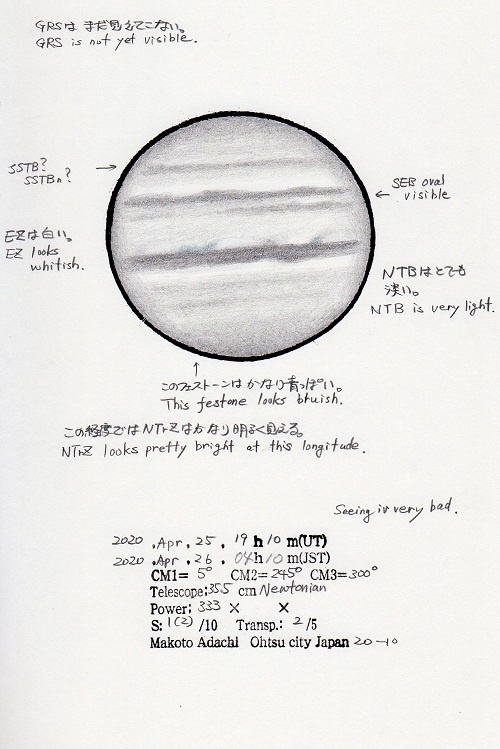 GRSは まだ見えてこない。
GRS is not yet visible.
SSTB?
SSTBn?
SEB oval
visible
EZは白い。
EZ looks
whitish.
NTBはとても
淡い。
NTB is very light.
このフェストーンは かなり青っぽい。
This festone looks bluish.
この経度ではNTrZはかなり明るく見える。
NTrZ looks pretty bright at this longitude.
Seeing is very bad.
2020 .Apr. 25 . 19 h 10 m(UT)
2020 .Apr . 26 . 04h 10 m(JST)
CM1= 5° CM2= 245° CM3= 300°
Telescope: 355 cm Newtonian
Power: 333 × ×
S: 1(2) /10 Transp.: 2 /5
Makoto Adachi Ohtsu city Japan 20-10